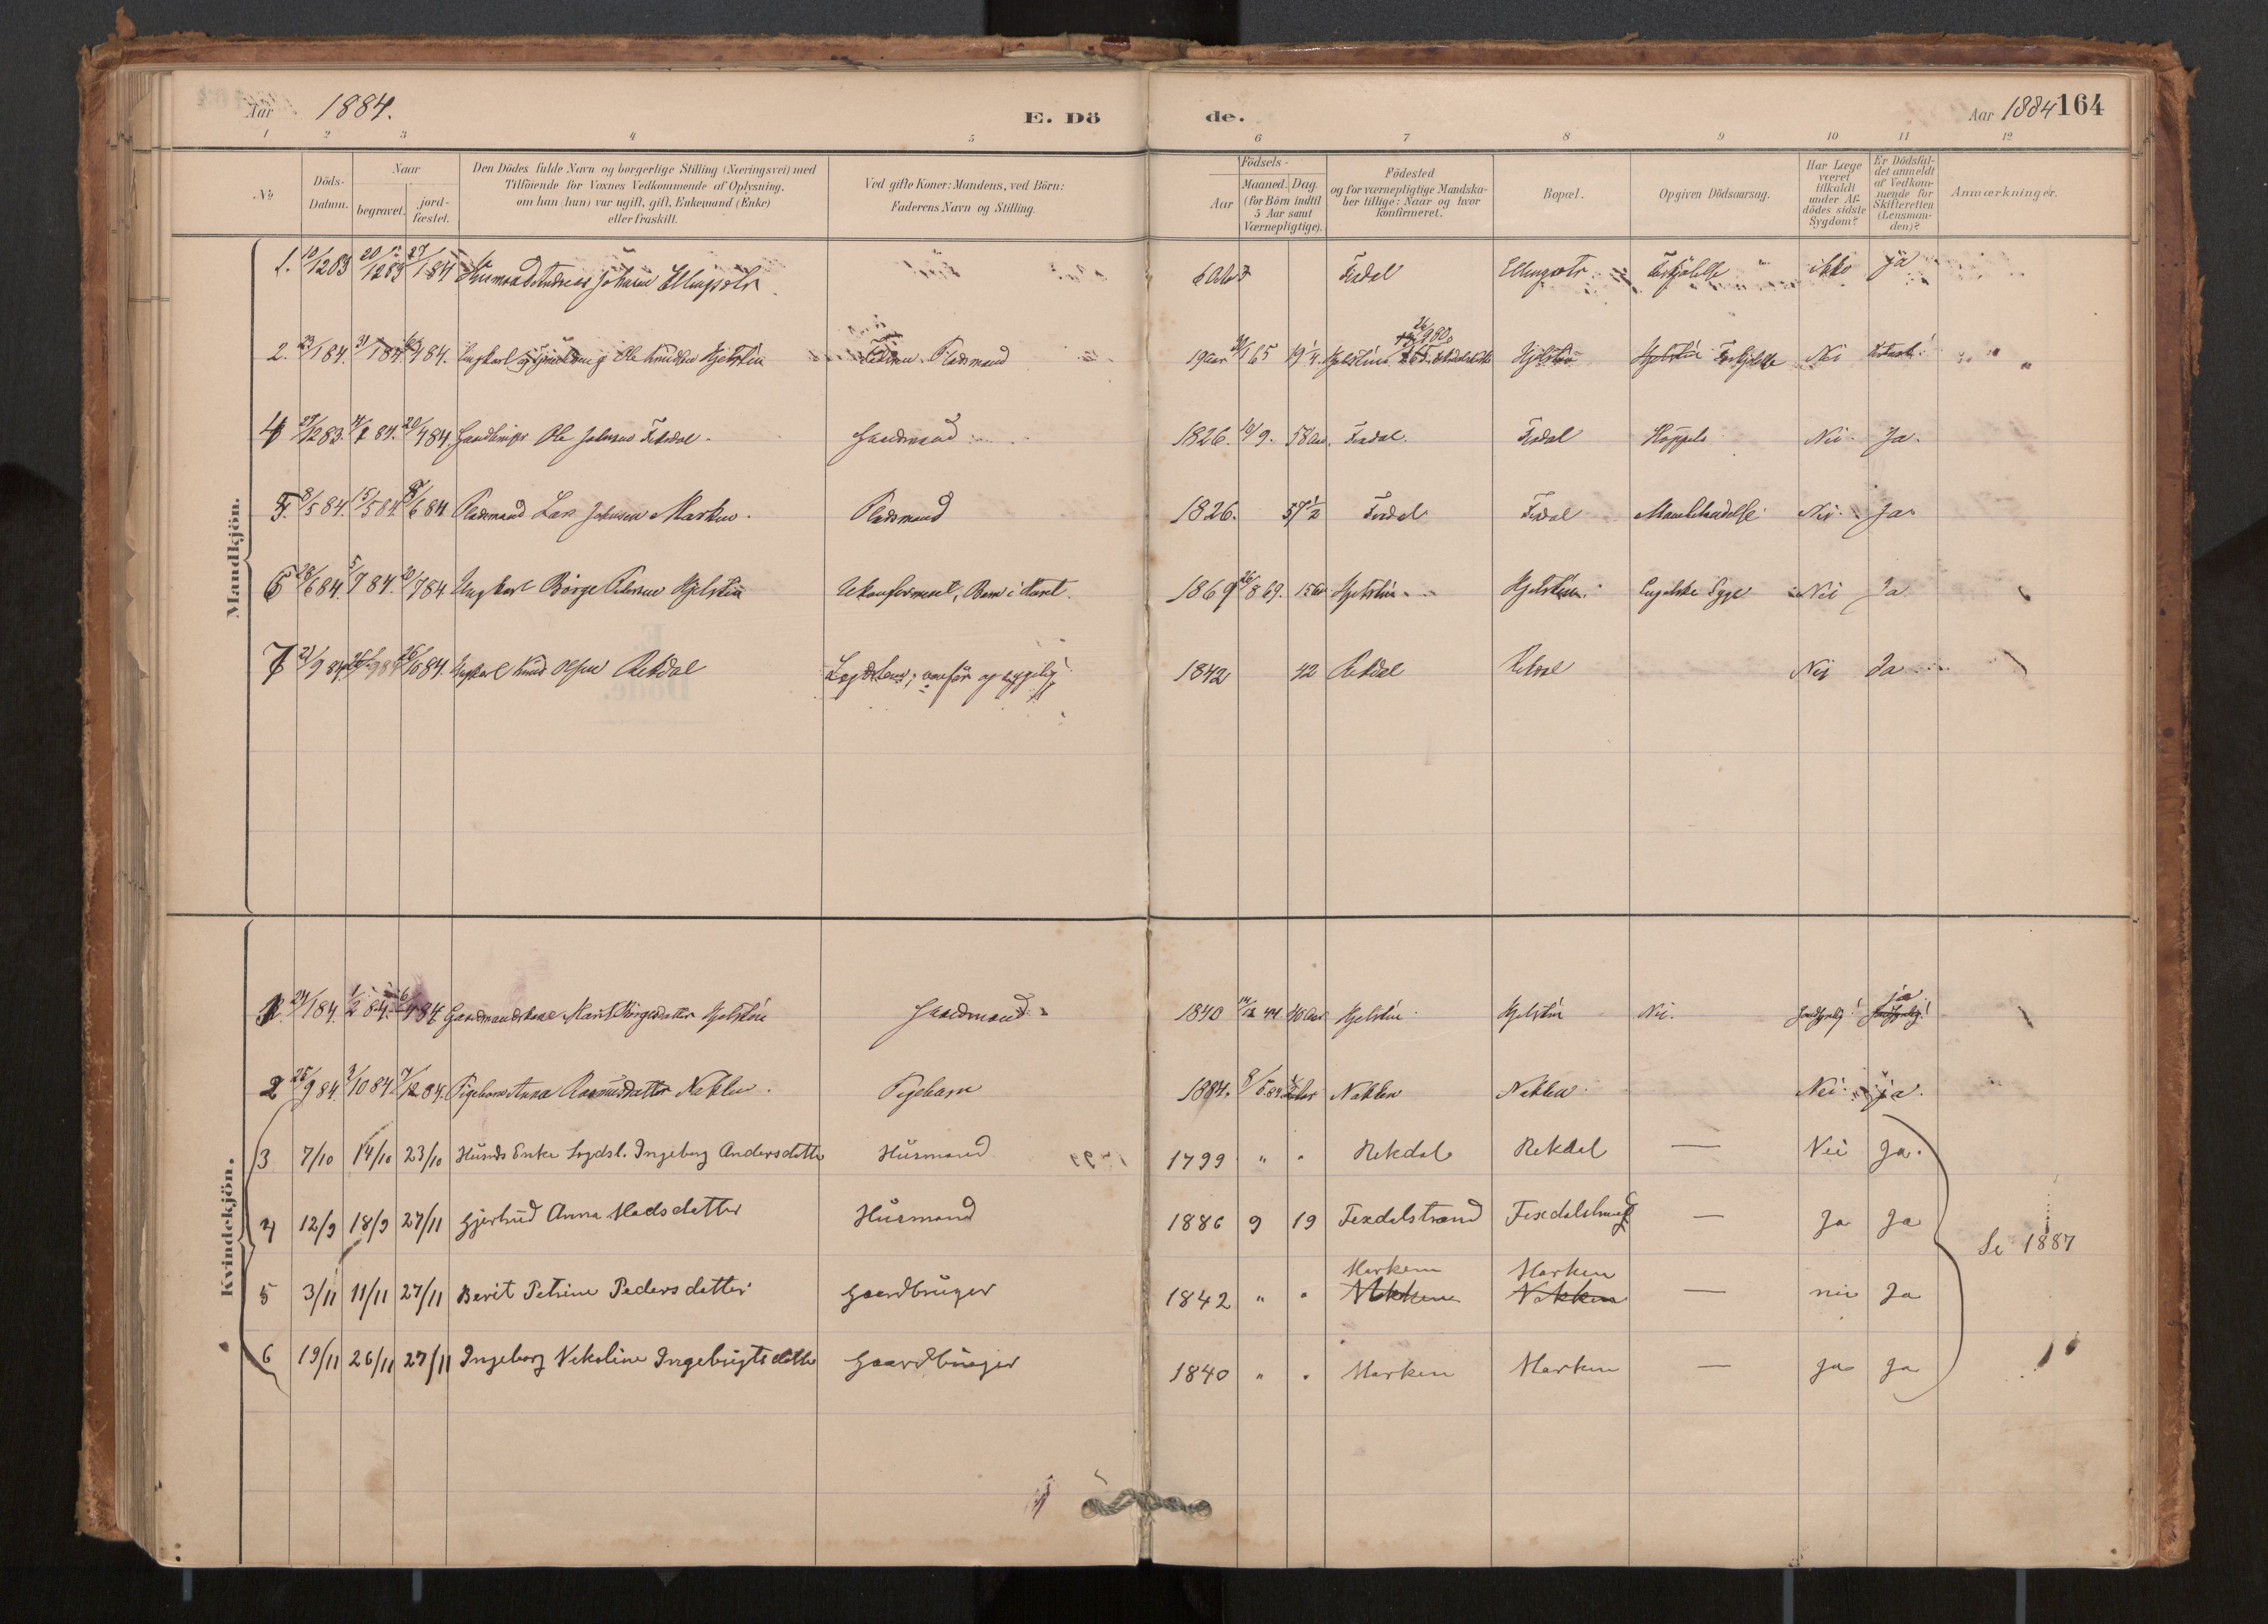 Aar 1884. E. Dö de. Aar 1884 164
1 2 3 4 5 6 7 8 9 10 11 12
№
Döds-Datum.
Naar
begravet.
jord-fæstet.
Den Dödes fulde Navn og borgerlige Stilling (Næringsvei) med
Tilföiende for Voxnes Vedkommende af Oplysning,
om han (hun) var ugift, gift, Enkemand (Enke)
eller fraskilt.
Ved gifte Koner: Mandens, ved Börn:
Faderens Navn og Stilling.
Födsels-
Aar
Maaned. Dag.
(for Börn indtil
5 Aar samt
Værnepligtige).
Födested
og for værnepligtige Mandska-
ber tillige: Naar og hvor
konfirmeret.
Bopæl.
Opgiven Dödsaarsag.
Har Læge
været
tilkaldt
under Af-
dödes sidste
Sygdom?
Er Dödsfal-
det anmeldt
af Vedkom-
mende for
Skifteretten
(Lensman-
den)?
Anmærkninger.
Mandkjön.
1. 12/12 83 20/12 83 27/1 84 Husmand Andreas Johnsen Ellingsæter Fixdal ikke ja
2. 23/1 84. 31/1 84 84. Ungkarl Ole Knudsen Hjelstin Pladsmand 19 aar 65 Hjelstin Hjelstin Nei
4 12 83. 84. 20/4 84. Ole Johnsen Fixdal. Gaardmand 1826. 9. 58 Aar. Fixdal. Fixdal Nei. Ja.
5. 8/5 84. 15/5 84. 6 84 Pladsmand Lars Johnsen Marken. Pladsmand 1826. 57 1/2 Fixdal Fixdal Nei. Ja.
6 28/6 84. 5/7 84. 20/7 84 Ungkarl Börge Pedersen Hjelstin Ukonfirmeret, 1869 26/8 69. 15 Aar Hjelstin. Hjelstin. Engelske Syge Nei Ja
7 21/9 84. 9 84 26/10 84. Ungkarl Knud Olsen Rekdal Lægdslem; vanför og sygelig 1842 42 Rekdal Rekdal Nei Ja
Kvindekjön.
1. 24/1 84. 1/2 84. 6/4 84. Gaardmandskone Marit Börgesdatter Hjelstin Gaardmand 1840 Hjelstin Hjelstin Nei. ja
2 25/9 84. 3/10 84. 7/12 84. Pigebarn Anna Rasmusdatter Nakken. Pigebarn 1884. 8/5 84 Nakken Nakken. Nei. ja.
3 7/10 14/10 23/10 Husmds Enke Lægdsl. Ingeborg Andersdatter Husmand 1799 " " Rekdal Rekdal — Nei Ja.
4 12/9 18/9 27/11 Gjertrud Anna Madsdatter Husmand 1886 9 19 Fixdalstrand Fixdalstrand — Ja Ja
Se 1887
Marken Marken
5 3/11 11/11 27/11 Berit Petrine Pedersdatter Gaardbruger 1842 " " Nakken Nakken — nei Ja
6 19/11 26/11 27/11 Ingeborg Nikoline Ingebrigtsdatter Gaardbruger 1840 " " Marken Marken — ja Ja